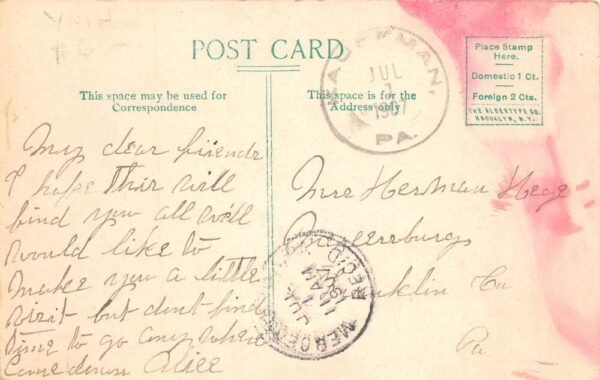 POST CARD
This space may be used for
Correspondence
This space is for the
Address only
Place Stamp
Here.
Domestic 1 Ct.
Foreign 2 Cts.
THE ALBERTYPE CO.
BROOKLYN, N.Y.
JUL
1907
PA.
My dear friends
I hope this will
find you all well
would like to
make you a little
visit but dont find
time to go any where
Come down Alice
Mrs Herman Hege
Franklin Co
Pa
MERCER
JUL
11 AM
1907
REC'D